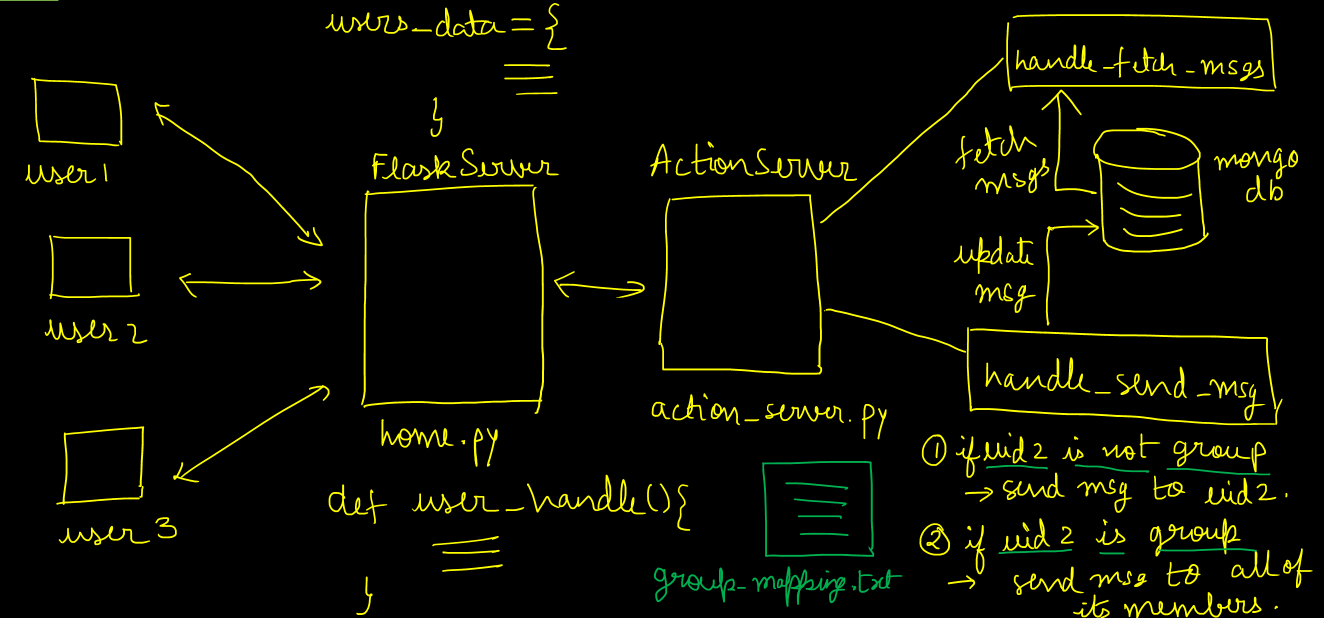 users_data = {
}
user1
user 2
user 3
Flask Server
home.py
def user_handle(){
}
Action Server
action_server.py
group_mapping.txt
handle_fetch_msgs
fetch
msgs
mongo
db
update
msg
handle_send_msg
① if uid2 is not group
→ send msg to uid2.
② if uid2 is group
→ send msg to all of
its members.